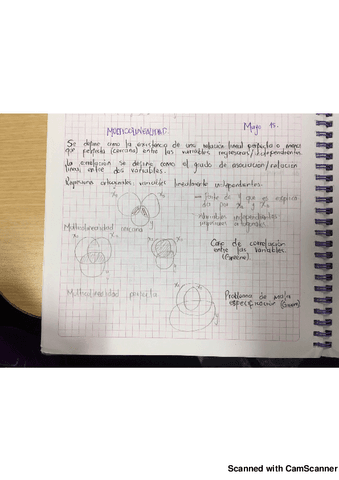 MULTICOLINEALIDAD. Mayo 15.
Se define como la existencia de una relación lineal perfecta o
perfecta (cercana) entre las variables regresoras/independientes
La correlación se define como el grado de asociación/relación
lineal entre dos variables.
Regresoras ortogonales: variables linealmente independientes
parte de Y que es explica
da por X₁ y X₂
variables independientes
regresoras ortogonales
Multicolinealidad cercana
Caso de correlación
entre las variables.
Multicolinealidad perfecta
Problema de mala
especificación
Scanned with CamScanner